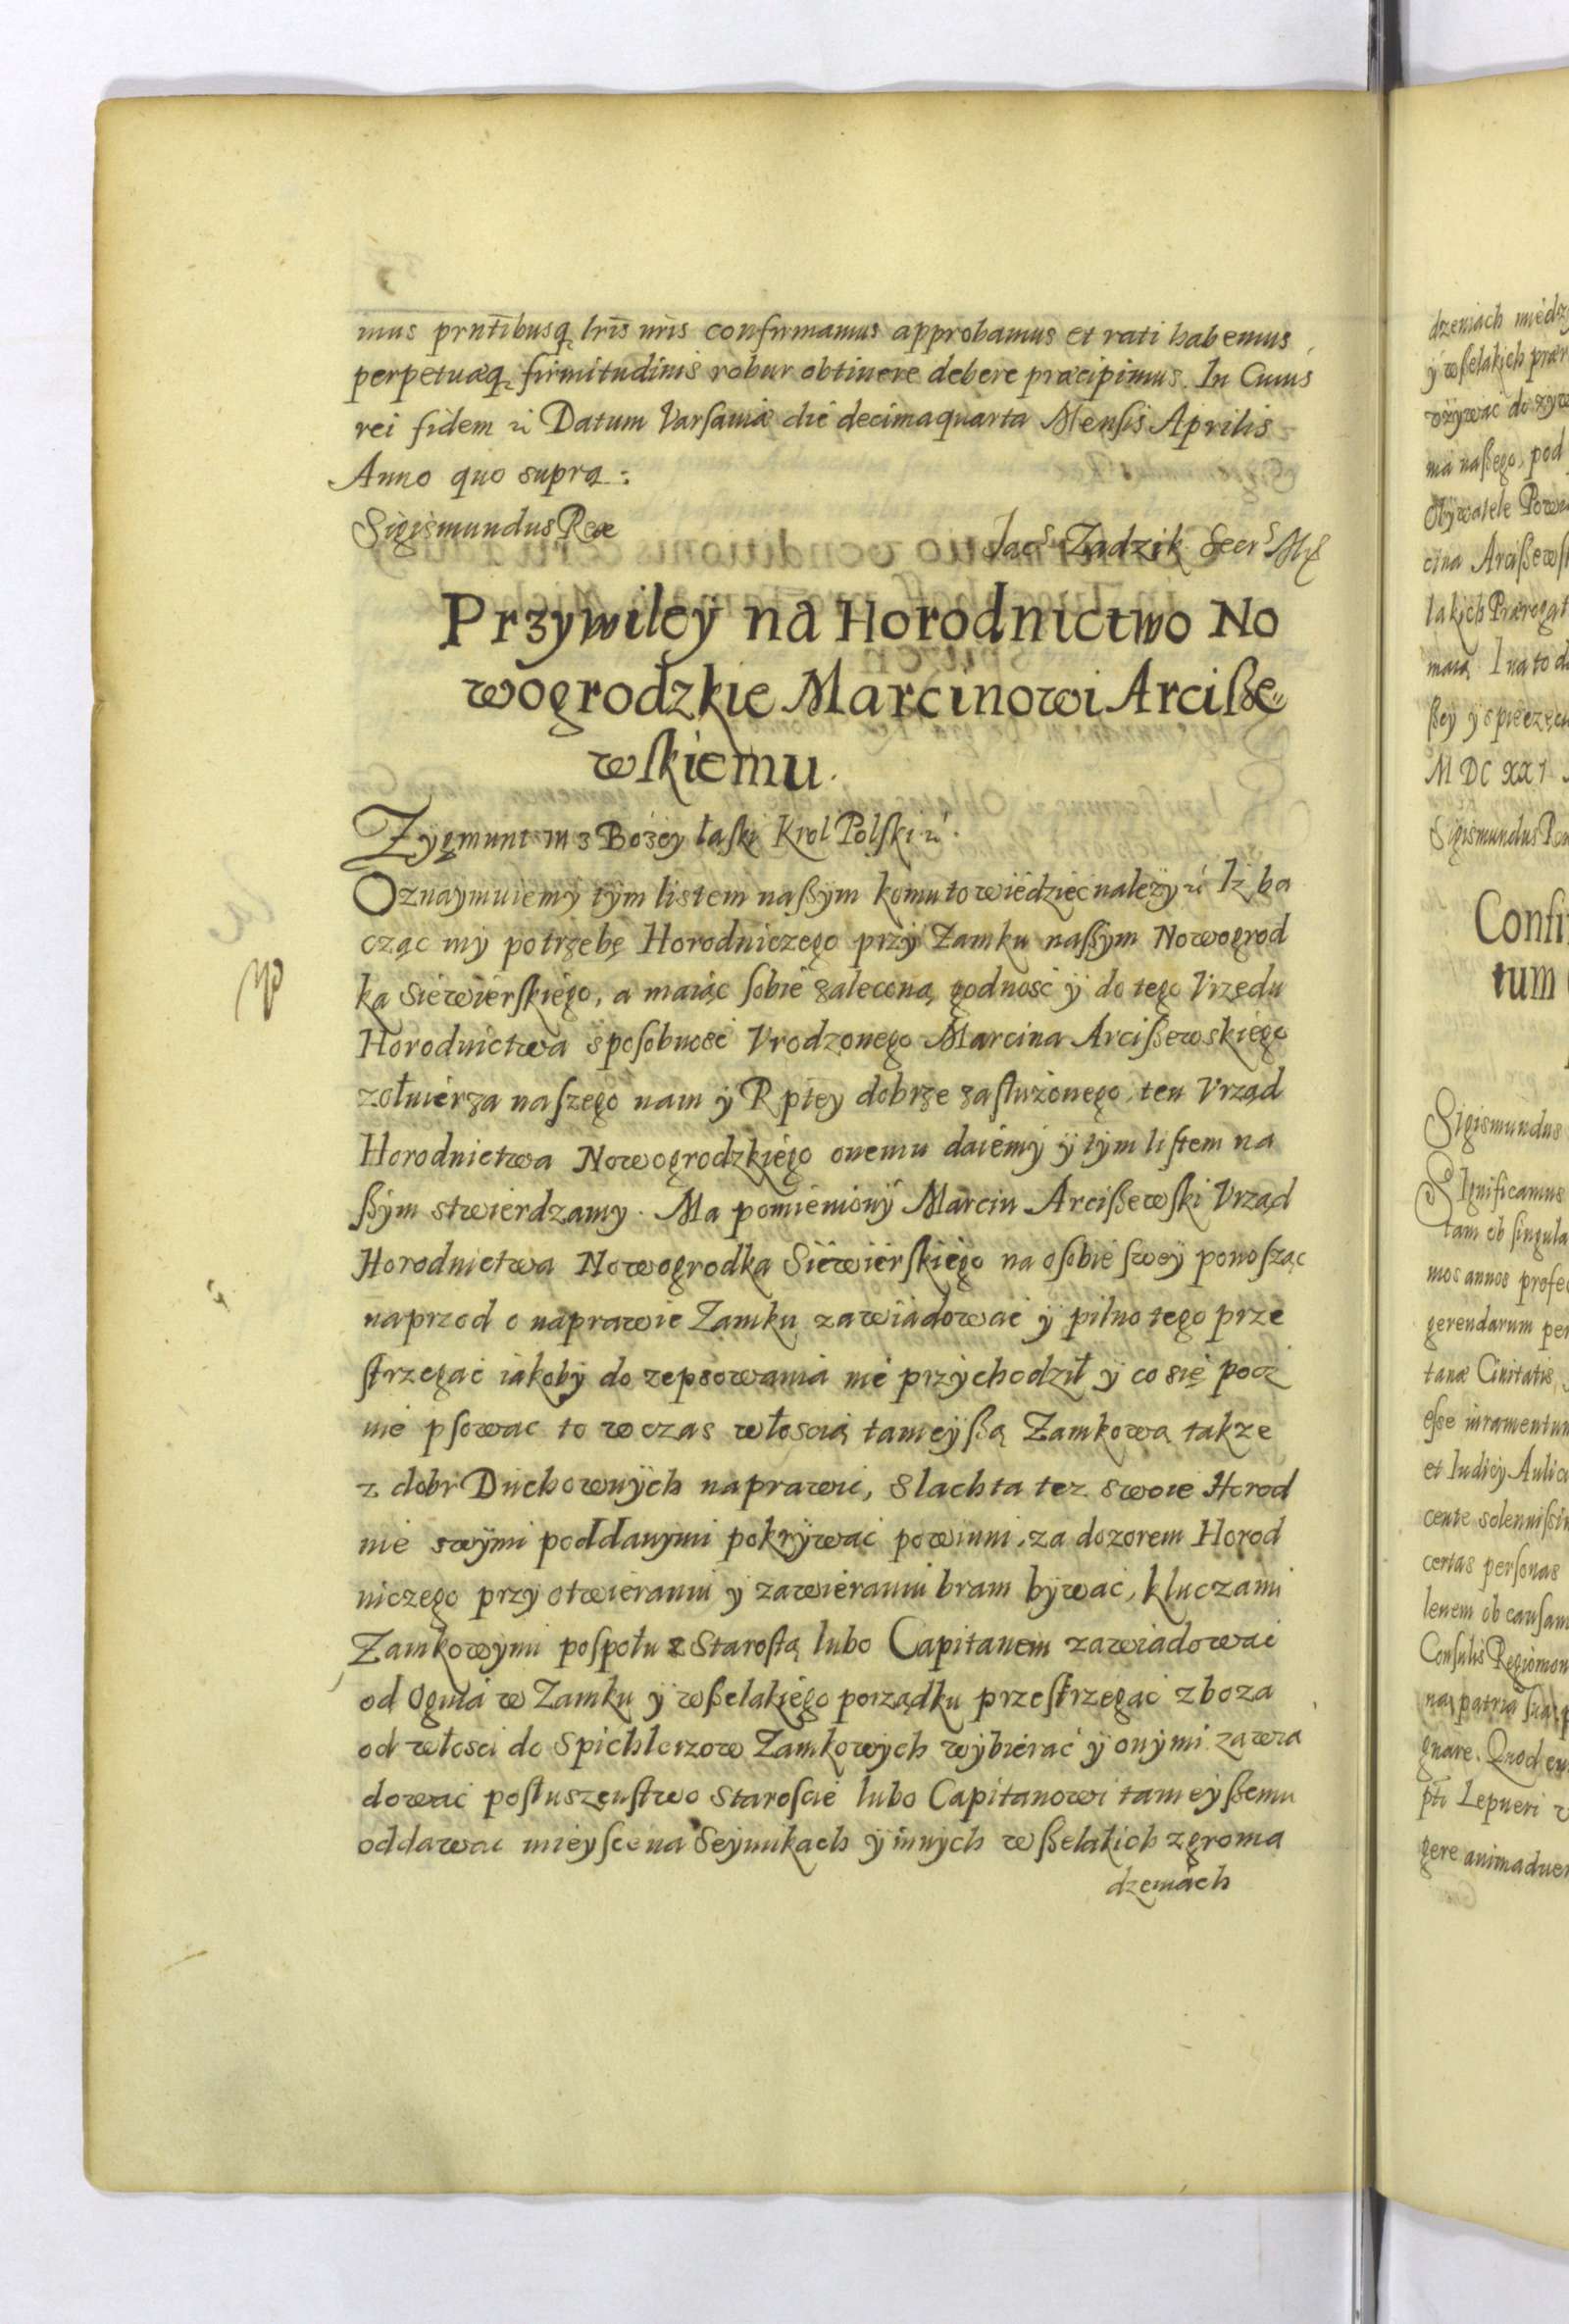 mus prntibusq lris nris confirmamus approbamus et rati habemus
perpetuæq firmitudinis robur obtinere debere præcipimus. In Cuius
rei fidem Datum Varsaviæ die decimaquarta Mensis Aprilis
Anno quo supra.
Sigismundus Rex
Jac Zadzik Secrs
Przywiley na Horodnictwo No
wogrodzkie Marcinowi Arciße
wſkiemu.
Zÿgmunt III z Bożey łaſki Krol Polſki
Oznaymuiemy tÿm listem naßÿm komu to wiedziec należÿ Iż ba
cząc my potrzebę Horodniczego przÿ Zamku naßÿm Nowogrod
ka Siewierſkiego, a maiąc ſobie zaleconą godność ÿ do tego Vrzędu
Horodnictwa spoſobność Vrodzonego Marcina Arcißewskiego
zołnierza naſzego nam ÿ Rptey dobrze zaſłużonego, ten Vrząd
Horodnictwa Nowogrodzkiego onemu daiemÿ ÿ tÿm liſtem na
ßÿm stwierdzamy. Ma pomienionÿ Marcin Arcißewſki Vrząd
Horodnictwa Nowogrodka Siewierſkiego na oſobie ſwey ponoſząc
naprzod o naprawie Zamku zawiadować ÿ pilno tego prze
ſtrzegać iakobÿ do zepsowania nie przÿchodził ÿ co się pocz
nie pſować to wczas włoscią tameyßą Zamkową takze
z dobr Duchownÿch naprawić, Slachta tez swoie Horod
nie swÿmi poddanymi pokrÿwać powinni, za dozorem Horod
niczego przy otwieraniu ÿ zawieraniu bram bÿwać, kluczami
Zamkowÿmi poſpołu z Staroſtą lubo Capitanem zawiadować
od Ognia w Zamku ÿ wßelakiego porządku przeſtrzegać zboza
od włosci do Spichlerzow Zamkowÿch wÿbierać ÿ onymi zawia
dować poſłuszenſtwo Staroſcie lubo Capitanowi tameyßemu
oddawać mieyſce na Seymikach ÿ innÿch wßelakich zgroma
dzeniach
dzeniach miedz
ÿ wßelakich prær
ma naßego, pod
Obywatele Powi
cina Arcißewſ
lakich Prærogat
maią I na to d
ßey ÿ spieczęc
M DC XXI
Sigismundus Re
Confi
tum
Sigismundus
Significamus
tam ob ſingula
mos annos profe
gerendarum per
tanæ Civitatis,
eſse iuramentum
et Iudicÿ Aulic
cente solennißi
certas perſonas
lenem ob cauſam
Conſulis Regiomon
gnare. Quod
pti Lepneri
gere animadver